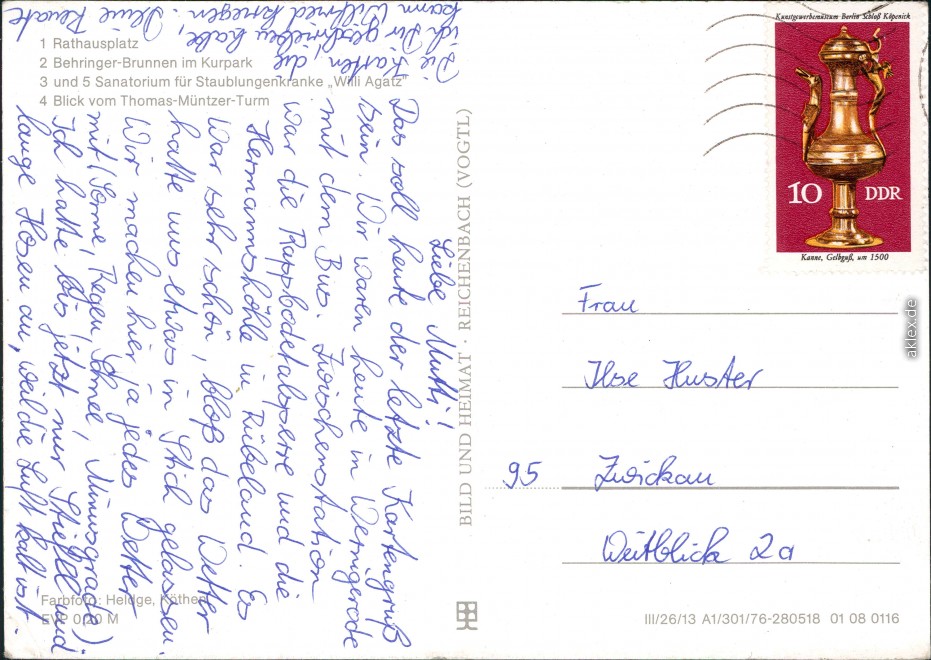 1 Rathausplatz
2 Behringer-Brunnen im Kurpark
3 und 5 Sanatorium für Staublungenkranke „Willi Agatz"
4 Blick vom Thomas-Müntzer-Turm
Liebe Mutti!
Das soll heute der letzte Kartengruß
sein. Wir waren heute in Wernigerode
mit dem Bus. Zwischenstation
war die Rappbodetalsperre und die
Hermannshöhle in Rübeland. Es
War sehr schön, bloß das Wetter
hatte uns etwas in Stich gelassen.
Wir machen hier ja jedes Wetter
mit (Sonne, Regen, Schnee, Minusgrade)
Ich hatte bis jetzt nur Stiefel und
lange Hosen an, weil die Luft kalt ist.
Die Karten, die
ich Dir geschrieben habe,
kann Wilfried kriegen. Deine Renate
Farbfoto: Heldge, Köthen
EVP 0,20 M
BILD UND HEIMAT · REICHENBACH (VOGTL)
Kunstgewerbemuseum Berlin Schloß Köpenick
10 DDR
Kanne, Gelbguß, um 1500
Frau
Ilse Huster
95 Zwickau
Weitblick 2a
III/26/13 A1/301/76-280518 01 08 0116
aklex.de